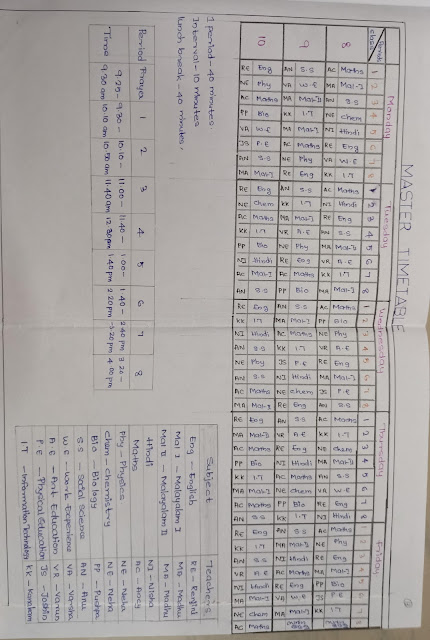 MASTER TIMETABLE
Monday Tuesday Wednesday Thursday Friday
Period 1 2 3 4 5 6 7 8 1 2 3 4 5 6 7 8 1 2 3 4 5 6 7 8 1 2 3 4 5 6 7 8 1 2 3 4 5 6 7 8
class
8 AC Maths MA Mal-I AN S.S NE Chem NI Hindi RE Eng VA W.E KK I.T AC Maths NI Hindi RE Eng AN S.S MA Mal-II VR A.E KK I.T MA Mal-I AC Maths PP Bio NE Phy VR A.E RE Eng MA Mal-I JS P.E AN S.S AC Maths KK I.T NE Chem MA Mal-I AN S.S VA W.E RE Eng NI Hindi AC Maths NE Phy RE Eng Mal-I PP Bio JS P.E KK I.T
9 AN S.S VA W.E MA Mal-II KK I.T MA Mal-I AC Maths NE Phy RE Eng AN S.S KK I.T MA Mal-I VR A.E NE Phy RE Eng AC Maths PP Bio AN S.S MA Mal-I AC Maths KK I.T JS P.E NI Hindi NE Chem RE Eng AN S.S VR A.E RE Eng NI Hindi AC Maths NE Chem PP Bio KK I.T AN S.S MA Mal-II NI Hindi AC Maths RE Eng VA W.E MA Mal-I
10 RE Eng NE Phy AC Maths PP Bio VA W.E JS P.E AN S.S MA Mal-I RE Eng NE Chem AC Maths KK I.T PP Bio NI Hindi AC Mal-I AN S.S RE Eng KK I.T NI Hindi AN S.S NE Phy AN S.S AC Maths MA Mal-I RE Eng MA Mal-II AC Maths PP Bio KK I.T MA Mal-I AC Maths AN S.S RE Eng KK I.T AN S.S VR A.E NI Hindi MA Mal-I NE Chem AC Maths
1 period - 40 minutes
Interval - 10 minutes
Lunch break - 40 minutes.
Period Prayer 1 2 3 4 5 6 7 8
Time 9:20 - 9:30 - 10:10 - 11:00 - 11:40 - 1:00 - 1:40 - 2:40 3:20 -
9:30 am 10:10 am 10:50 am 11:40 am 12:20pm 1:40 pm 2:20 pm 3:20 pm 4:00 pm
Subject Teachers
Eng - English RE -
Mal I - Malayalam I MA - Madhu
Mal II - Malayalam II MA - Madhu
Hindi NI - Nisha
Maths AC -
Phy - Physics NE - Neha
Chem - Chemistry NE - Neha
Bio - Biology PP - Pushpa
S.S - Social Science AN - Anu
W.E - Work Experience VA - Varsha
A.E - Art Education VR - Varun
P.E - Physical Education JS -
I.T - Information Technology KK -